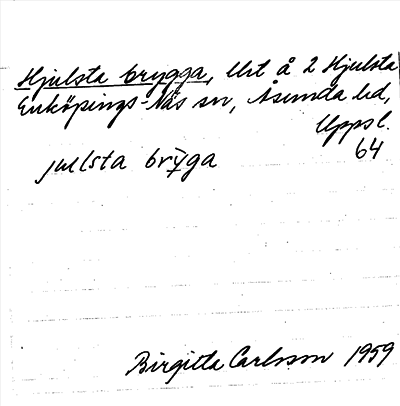 Hjulsta brygga, Uht å 2 Hjulsta
Enköpings-Näs sn, Åsunda hd,
Uppsl.
64
julsta brỵ̄ga
Birgitta Carlsson 1959